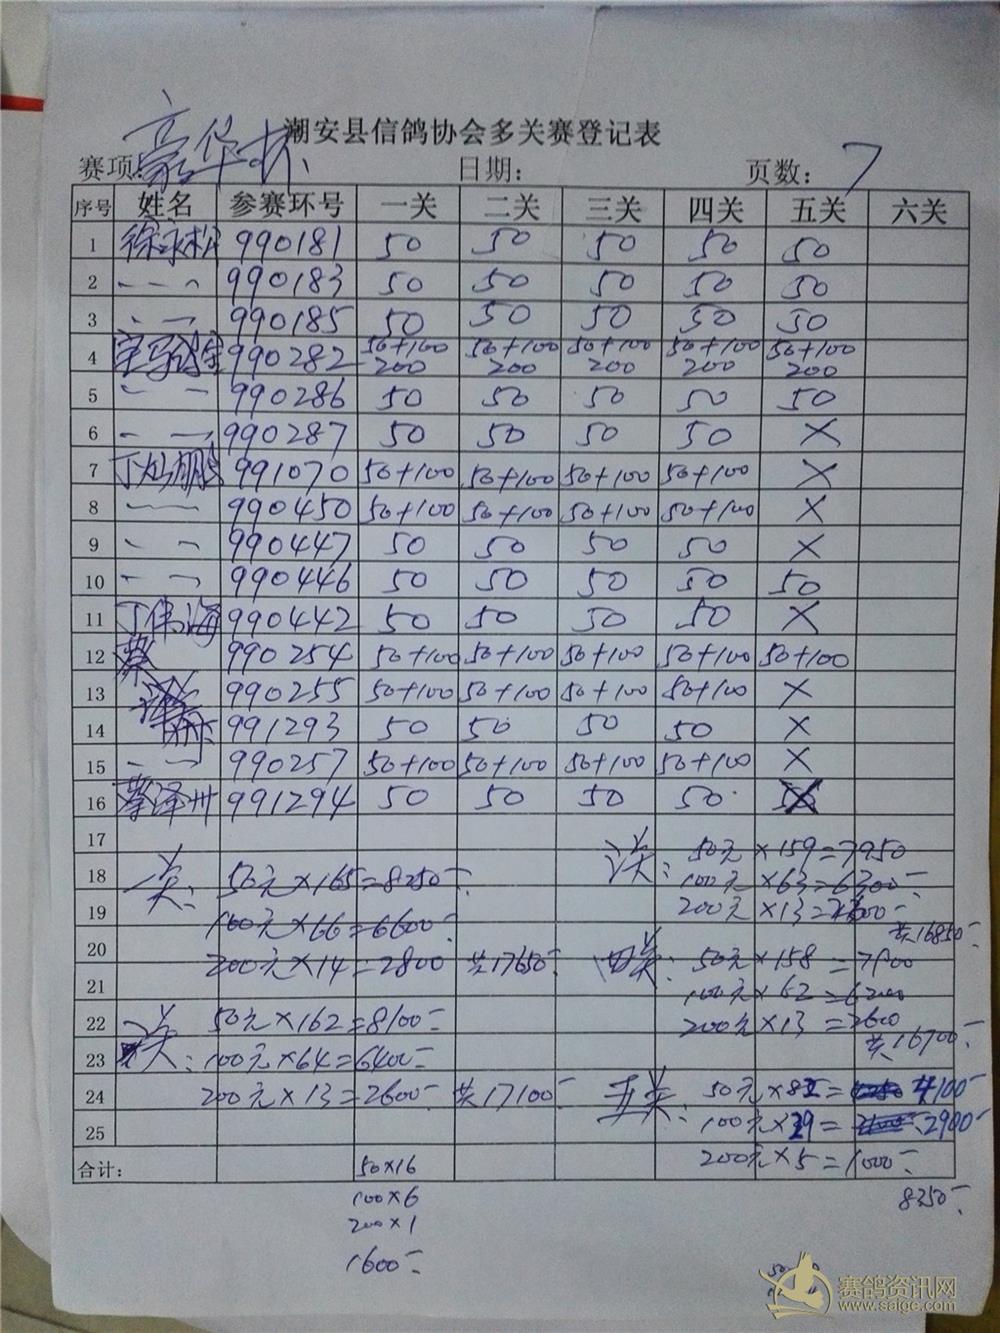 潮安县信鸽协会多关赛登记表
赛项: 豪华杯 日期: 页数: 7
序号 姓名 参赛环号 一关 二关 三关 四关 五关 六关
1 徐永松 990181 50 50 50 50 50
2 〃 990183 50 50 50 50 50
3 〃 990185 50 50 50 50 50
4 990282 50+100 200 50+100 200 50+100 200 50+100 200 50+100 200
5 〃 990286 50 50 50 50 50
6 〃 990287 50 50 50 50 ×
7 丁灿鹏 991070 50+100 50+100 50+100 50+100 ×
8 〃 990450 50+100 50+100 50+100 50+100 ×
9 〃 990447 50 50 50 50 ×
10 〃 990446 50 50 50 50 50
11 丁伟海 990442 50 50 50 50 ×
12 蔡 990254 50+100 50+100 50+100 50+100 50+100
13 990255 50+100 50+100 50+100 50+100 ×
14 991293 50 50 50 50 ×
15 〃 990257 50+100 50+100 50+100 50+100 ×
16 蔡泽州 991294 50 50 50 50 ×
17
18
19
20
21
22
23
24
25
一关: 50元×165=8250
100元×66=6600
200元×14=2800 共17650
二关: 50元×162=8100
100元×64=6400
200元×13=2600 共17100
三关: 50元×159=7950
100元×63=6300
200元×13=2600
共16850
四关: 50元×158=7900
100元×62=6200
200元×13=2600
共16700
五关: 50元×82=4100
100元×29=2900
200元×5=1000
8250
合计: 50×16
100×6
200×1
1600
赛鸽资讯网
www.saigc.com